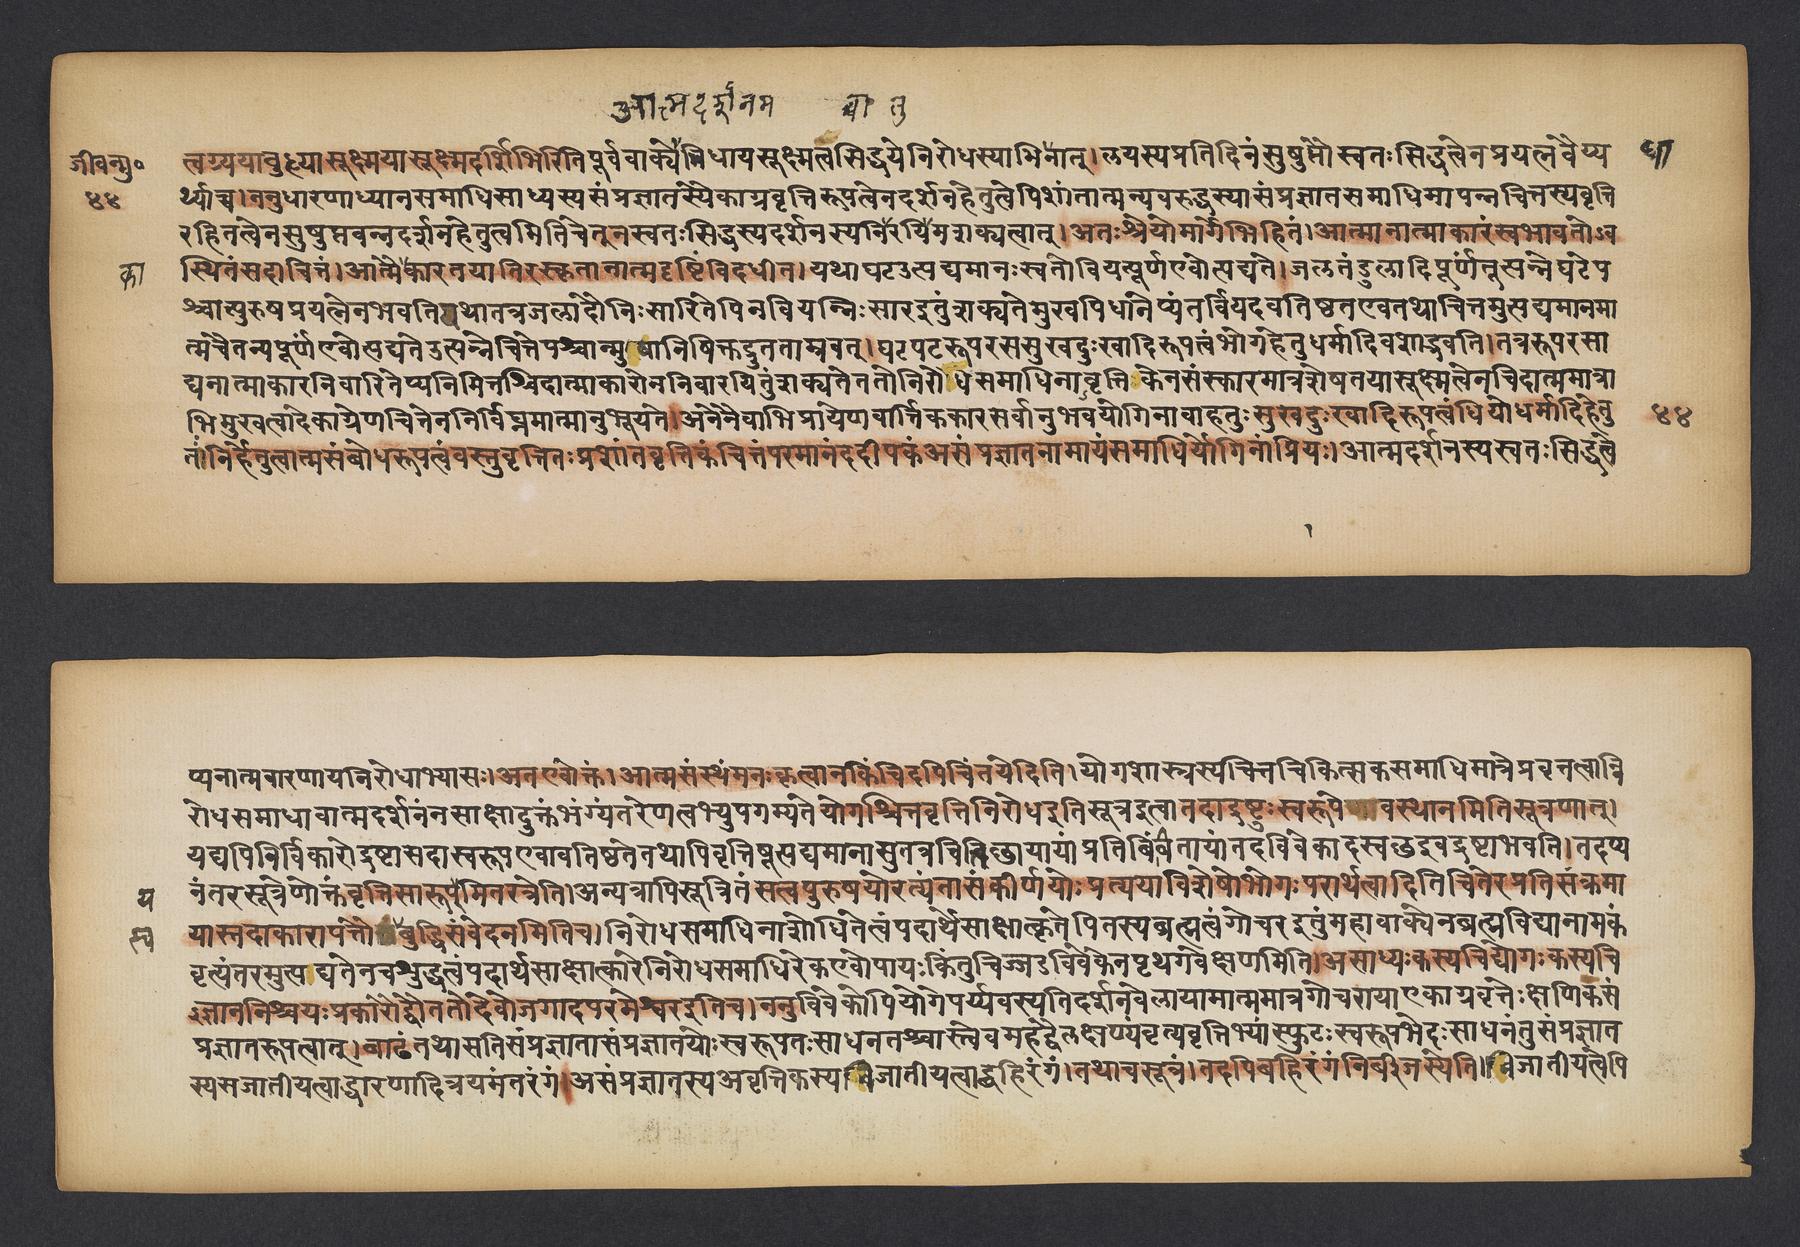 आत्मदर्शनम वा तु
जीवन्मु॰ त्वग्र्ययाबुद्ध्यासूक्ष्मयासूक्ष्मदर्शिभिरितिपूर्ववाक्येभिधायसूक्ष्मत्वसिद्धयेनिरोधस्याभिनात्।लयस्यप्रतिदिनंसुषुप्तौस्वतःसिद्धत्वेनप्रयत्नवैय्य धा
४४ र्थ्याच्च।ननुधारणाध्यानसमाधिसाध्यस्यसंप्रज्ञातस्यैकाग्रवृत्तिरूपत्वेनदर्शनहेतुत्वेपिशांतात्मन्यवरुद्धस्यासंप्रज्ञातसमाधिमापन्नचित्तस्यवृत्ति
रहितत्वेनसुषुप्तवन्नदर्शनहेतुत्वमितिचेत्नस्वतःसिद्धस्यदर्शनस्यनिरयिमशक्यत्वात्।अतःश्रेयोमार्गेभिहितं।आत्मानात्माकारंस्वभावतोऽव
का स्थितंसदाचित्तं।आत्मैकारतयातिरस्कृतानात्मदृष्टिंविदधीत।यथाघटउत्पद्यमानःस्वतोवियत्पूर्णएवोत्पद्यते।जलतंडुलादिपूर्णंतूत्पन्नेघटेप
श्चात्पुरुषप्रयत्नेनभवतियथातत्रजलादौनिःसारितेपिनवियन्निःसारइतुंशक्यतेमुखपिधानेप्यंतर्वियदवतिष्ठतएवतथाचित्तमुत्पद्यमानमा
त्मचैतन्यपूर्णएवोत्पद्यतेउत्पन्नेचित्तेपश्चान्मुषानिषिक्तद्रुतताम्रवत्।घटपटरूपरससुखदुःखादिरूपत्वंभोगहेतुधर्मादिवशाद्भवति।तत्ररूपरसा
द्यनात्माकारनिवारितेप्यनिमित्तश्चिदात्माकारोननिवारयितुंशक्यतेततोनिरोधसमाधिनावृत्तिकेनसंस्कारमात्रशेषतयासूक्ष्मत्वेनचिदात्ममात्रा
भिमुखत्वादेकाग्रेणचित्तेननिर्विघ्नमात्मानुभूयते।अनेनैवाभिप्रायेणवार्त्तिककारसर्वानुभवयोगिनावाहतुःसुखदुःखादिरूपत्वंधियोधर्मादिहेतु ४४
तांनिर्हेतुत्वात्मसंबोधरूपत्वंवस्तुवृत्तितःप्रशांतवृत्तिकंचित्तंपरमानंददीपकंअसंप्रज्ञातनामायंसमाधिर्योगिनांप्रियः।आत्मदर्शनस्यस्वतःसिद्धत्वे
प्यनात्मवारणायनिरोधाभ्यासः।अतएवोक्तं।आत्मसंस्थंमनःकृत्वानकिंचिदपिचिंतयेदिति।योगशास्त्रस्यचित्तचिकित्सकसमाधिमात्रेप्रवृत्तत्वान्नि
रोधसमाधावात्मदर्शनंनसाक्षादुक्तंभंग्यंतरेणत्वभ्युपगम्यतेयोगश्चित्तवृत्तिनिरोधइतिसूत्रइत्वातदाद्रष्टुःस्वरूपेवस्थानमितिसूत्रणात्।
यद्यपिनिर्विकारोद्रष्टासदास्वरूपएवावतिष्ठतेतथापिवृत्तिषूत्पद्यमानासुतत्रचितिछायायांप्रतिबिंबितायांतदविवेकादस्वछइवद्रष्टाभवति।तदप्य
य नंतरसूत्रेणोक्तंवृत्तिसारूप्यमितरत्रेति।अन्यत्रापिसूत्रितंसत्वपुरुषयोरत्यंतासंकीर्णयोःप्रत्ययाविशेषोभोगःपरार्थत्वादितिचितेरप्रतिसंक्रमा
स्व यास्तदाकारापत्तौबुद्धिसंवेदनमितिच।निरोधसमाधिनाशोधितेत्वंपदार्थेसाक्षात्कृतेपितस्यब्रह्मत्वंगोचरइतुंमहावाक्येनब्रह्मविद्यानामकं
वृत्यंतरमुत्पद्यतेनचशुद्धत्वंपदार्थसाक्षात्कारेनिरोधसमाधिरेकएवोपायःकिंतुचिज्जडविवेकेनपृथगवेक्षणमिति।असाध्यःकस्यचिद्योगःकस्यचि
ज्ज्ञाननिश्चयःप्रकारौद्वौततोदेवोजगादपरमेश्वरइतिच।ननुविवेकोपियोगेपर्य्यवस्यतिदर्शनवेलायामात्ममात्रगोचरायाएकाग्रवृत्तेःक्षणिकसं
प्रज्ञातरूपत्वात्।बाढंतथासतिसंप्रज्ञातासंप्रज्ञातयोःस्वरूपतःसाधनतश्चास्त्येवमहद्वैलक्षण्यंवृत्यवृत्तिभ्यांस्फुटःस्वरूपभेदःसाधनंतुसंप्रज्ञात
स्यसजातीयत्वाद्धारणादित्रयमंतरंगं।असंप्रज्ञातस्यअवृत्तिकस्यविजातीयत्वाद्बहिरंगं।तथाचसूत्रं।तदपिबहिरंगंनिर्बीजस्येति।विजातीयत्वेपि